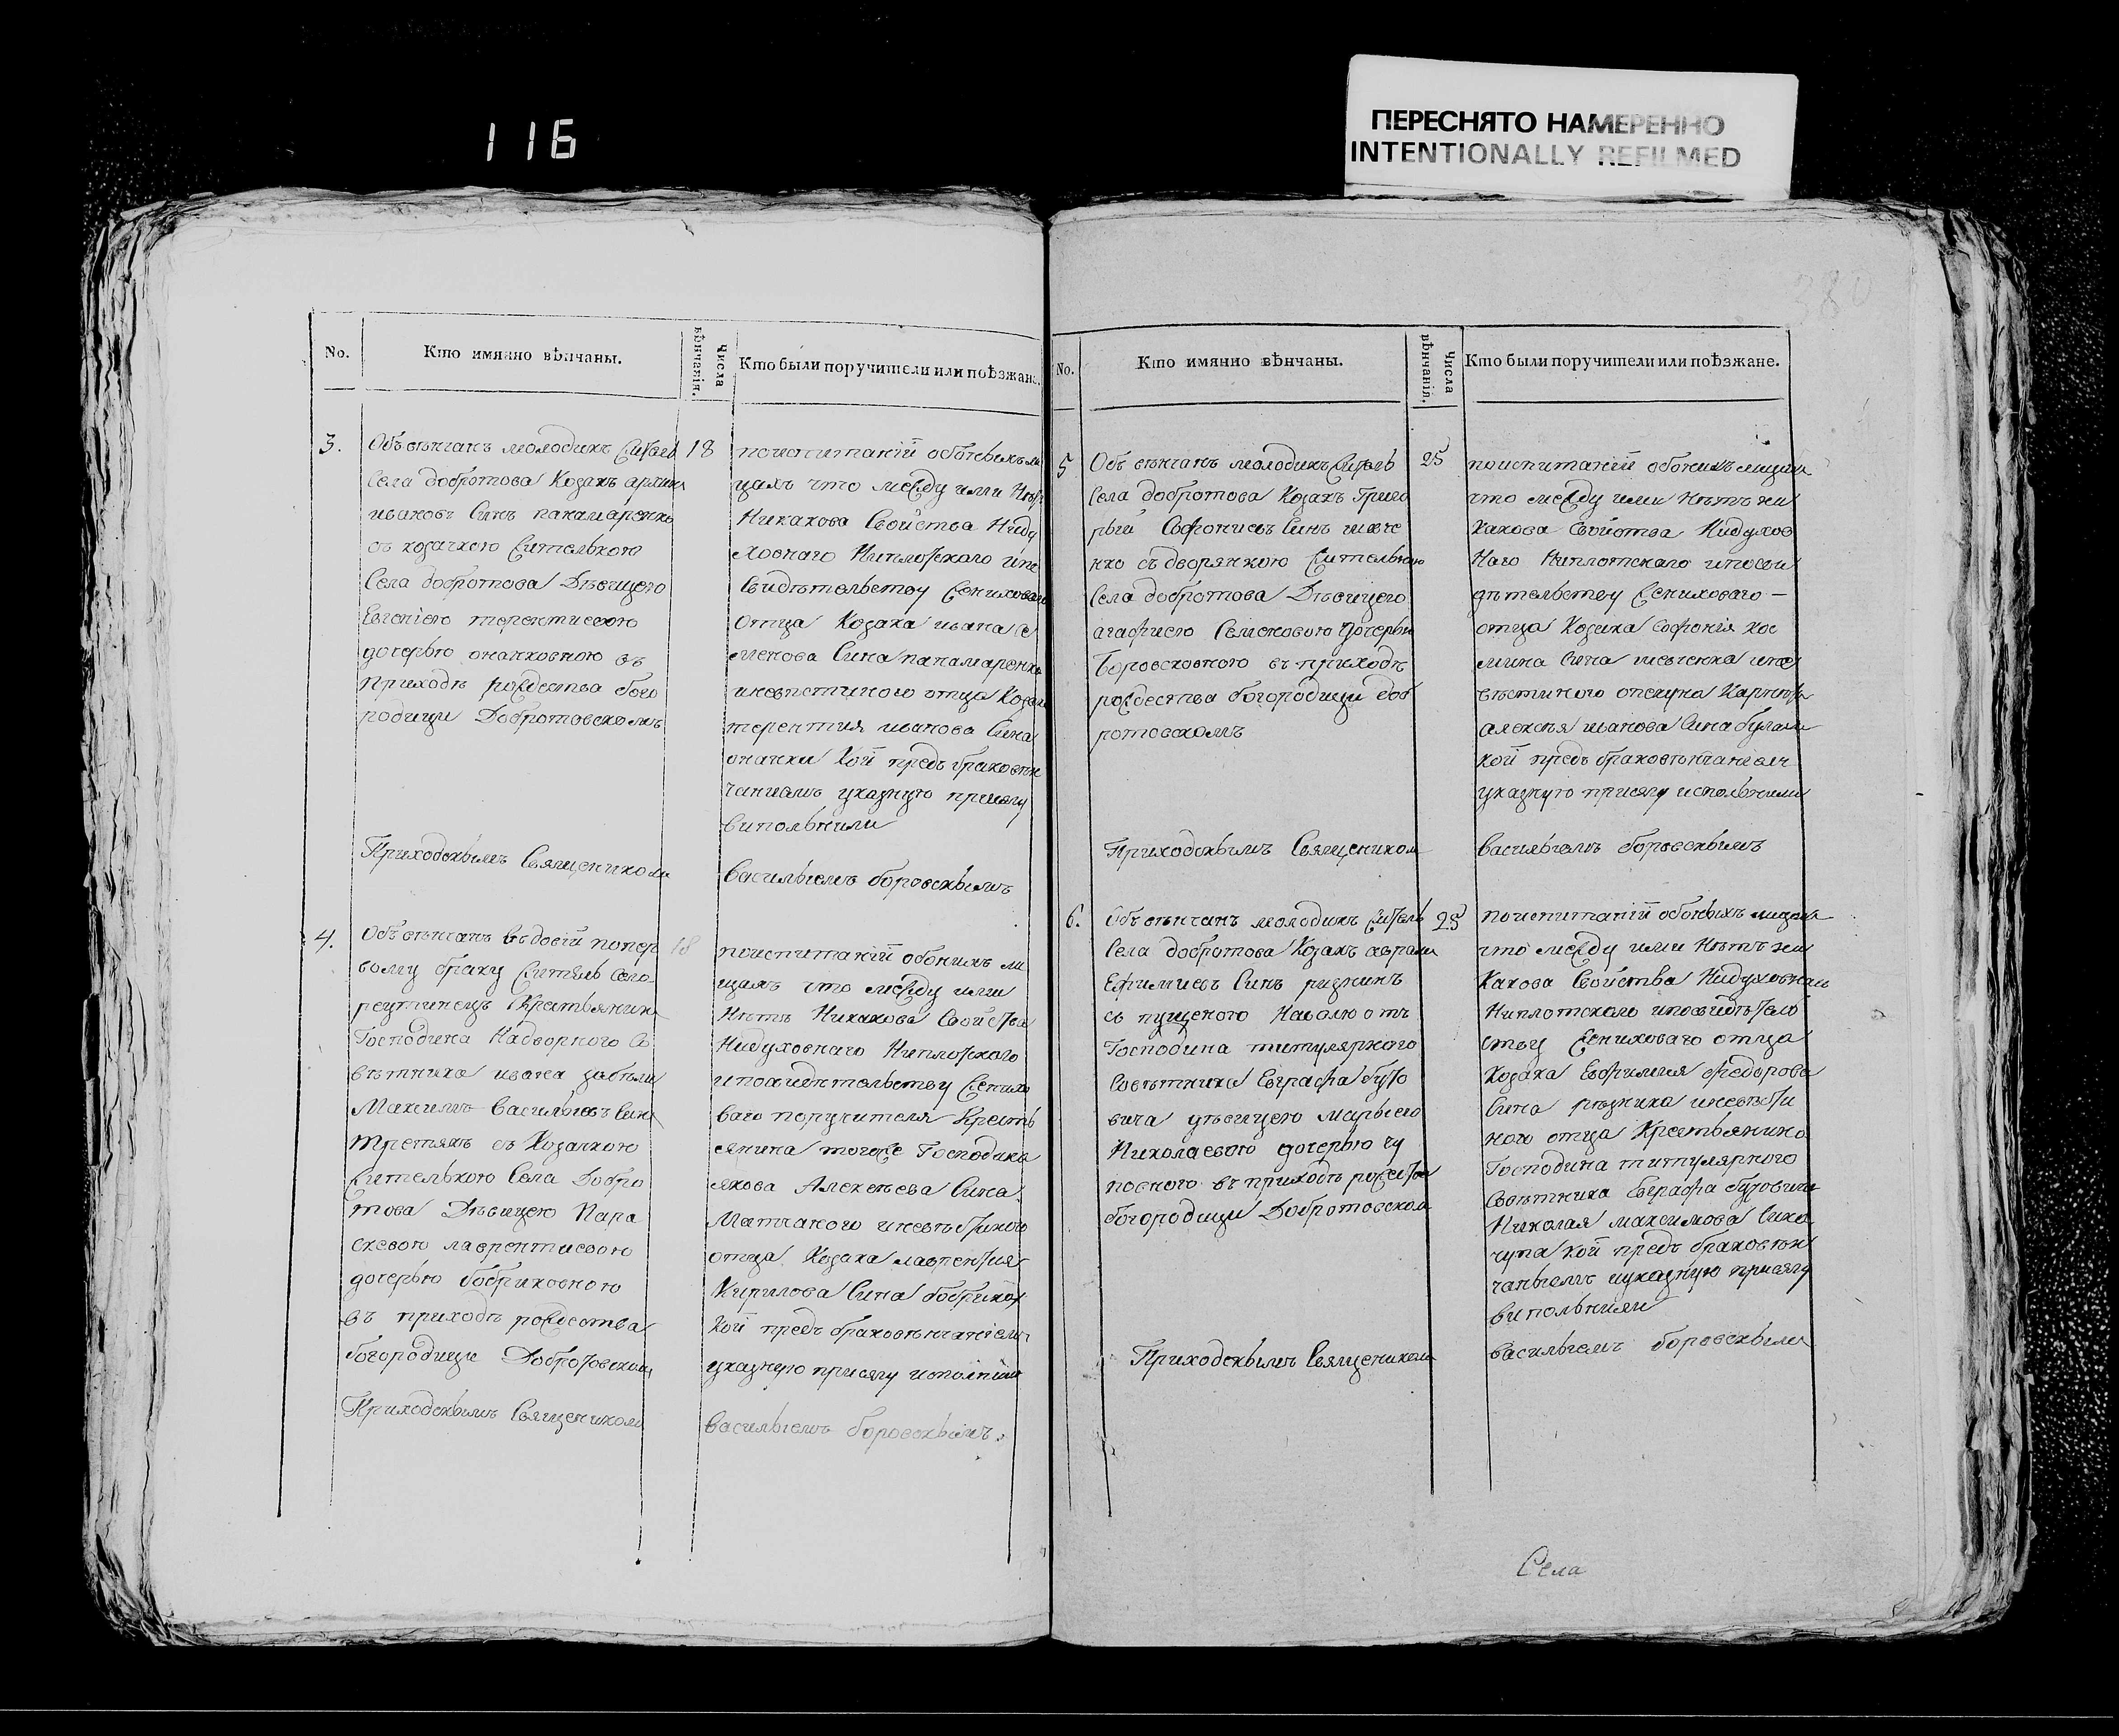 116
ПЕРЕСНЯТО НАМЕРЕННО
INTENTIONALLY REFILMED
380
No.
Кто имянно вѣнчаны.
Числа вѣнчанія.
Кто были поручители или поѣзжане.
3.
Объвѣнчанъ молодикъ житель
села добротова Козакъ архипъ
ивановъ Синъ панамаренко
съ козачкою жителькою
Села добротова Дѣвицею
Евгеніею терентиевою
дочерью онанковною въ
приходѣ рождества бого
родици Добротовскомъ
Приходскьимъ Священикомъ
18
поиспитаніи обоихъ ли
цахъ что между ими Нѣтъ
Никакова Свойства Ниду
ховнаго Ниплотскаго ипо
Свидѣтельству жениховаго
отца Козака ивана Се
менова Сина панамаренка
иневѣстиного отца Козака
терентия иванова Сина
онанки Кои предъ браковѣн
чаниемъ указную присягу
випольнили
васильіемъ боровскьимъ
4.
Объвѣнчанъ вьдовій попер
вому браку житель Села
реутинецъ Крестьянинъ
Господина Надворного Со
вѣтника ивана забѣли
Максимъ васильіевъ Синъ
третякъ съ Козачкою
жителькою Села Добро
това Дѣвицею Пара
скевою лаврентиевою
дочерью бобриковною
въ приходѣ рождества
богородици Добротовскомъ
Приходскьимъ Священикомъ
18
поиспитаніи обоихъ ли
цахъ что между ими
Нѣтъ Никакова Свойства
Нидуховнаго Ниплотскаго
ипосвидѣтельству женихо
ваго поручителя Кресть
янина тогоже Господина
якова Алексѣева Сина
Матчаного иневѣстиного
отца Козака лаврентия
Кирилова Сина бобрика
Кои предъ браковѣнчаніемъ
указную присягу исполнили
васильіемъ боровскьимъ.
No.
Кто имянно вѣнчаны.
Числа вѣнчанія.
Кто были поручители или поѣзжане.
5
Объвѣнчанъ молодикъ житель
Села добротова Козакъ Григо
рьій Софониевъ Синъ шевче
нко съдворянкою жителькою
Села добротова Дѣвицею
агафиею Семеновою дочерью
Боровсковною въ приходѣ
рождества богородици доб
ротовскомъ
Приходскьимъ Священикомъ
25
поиспитаніи обоихъ лицахъ
что между ими Нѣтъ ни
какова Свойства Нидухов
Наго Ниплотскаго ипосви
дѣтельству жениховаго —
отца Козака Софонія кос
мина Сина шевченка ине
вѣстиного опекуна
алексѣя иванова Сина
кои предъ браковѣнчаніемъ
указную присягу исполньили
васильіемъ боровскьимъ
6.
Объвѣнчанъ молодикъ житель
Села добротова Козакъ аврамъ
Ефимиевъ Синъ ризникъ
съ пущеною Наволю отъ
Господина титулярного
Совѣтника Евграфа буто
вича дѣвицею марьіею
Николаевою дочерью чу
повною въ приходѣ рождества
богородици Добротовскомъ
Приходскьимъ Священикомъ
25
поиспитаніи обоихъ лицахъ
что между ими Нѣтъ ни
Какова Свойства Нидуховнаго
Ниплотскаго ипосвидѣтель
ству жениховаго отца
Козака Ефимия федорова
Сина рѣзника иневѣсти
ного отца Крестьянина
Господина титулярного
Совѣтника Евграфа бутовича
Николая максимова Сина
чупа кои предъ браковѣн
чаньіемъ иуказную присягу
виполньили
васильіемъ боровскьимъ
Села